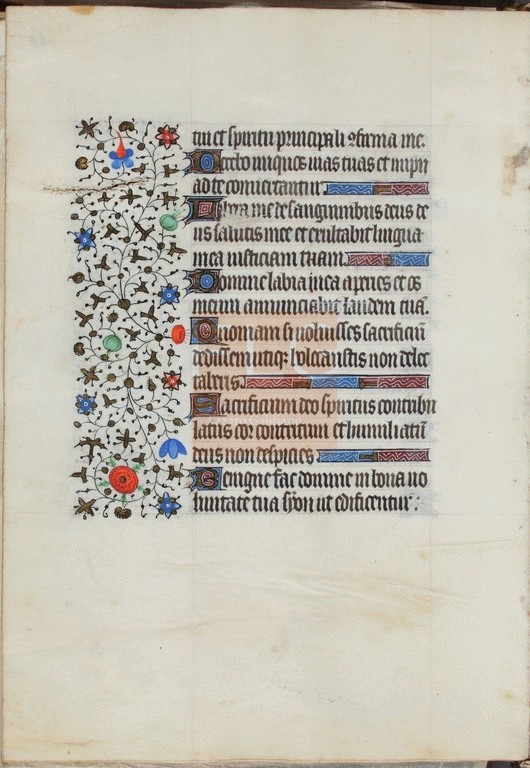 tui et spiritu principali ꝯfirma me.
Docebo iniquos uias tuas et impii
ad te conuertantur.
Libera me de sanguinibus deus de
us salutis mee et exultabit lingua
mea iusticiam tuam.
Domine labia mea aperies et os
meum annunciabit laudem tuā.
Quoniam si uoluisses sacrificiū
dedissem utiqꝫ holocaustis non delec
taberis.
Sacrificium deo spiritus contribu
latus cor contritum et humiliatū
deus non despicies
Benigne fac domine in bona uo
luntate tua syon ut edificentur: